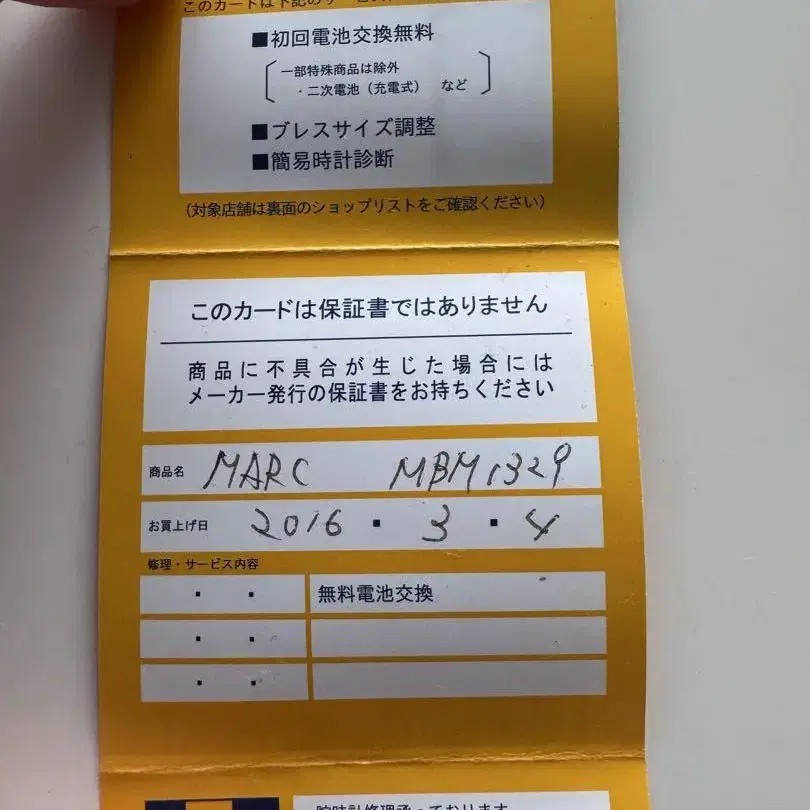 このカードは下記の
■初回電池交換無料
一部特殊商品は除外
・二次電池（充電式）　など
■ブレスサイズ調整
■簡易時計診断
（対象店舗は裏面のショップリストをご確認ください）
このカードは保証書ではありません
商品に不具合が生じた場合には
メーカー発行の保証書をお持ちください
商品名 MARC MBM1329
お買上げ日 2016・3・4
修理・サービス内容
・ ・ 無料電池交換
・ ・
・ ・
腕時計修理承っております